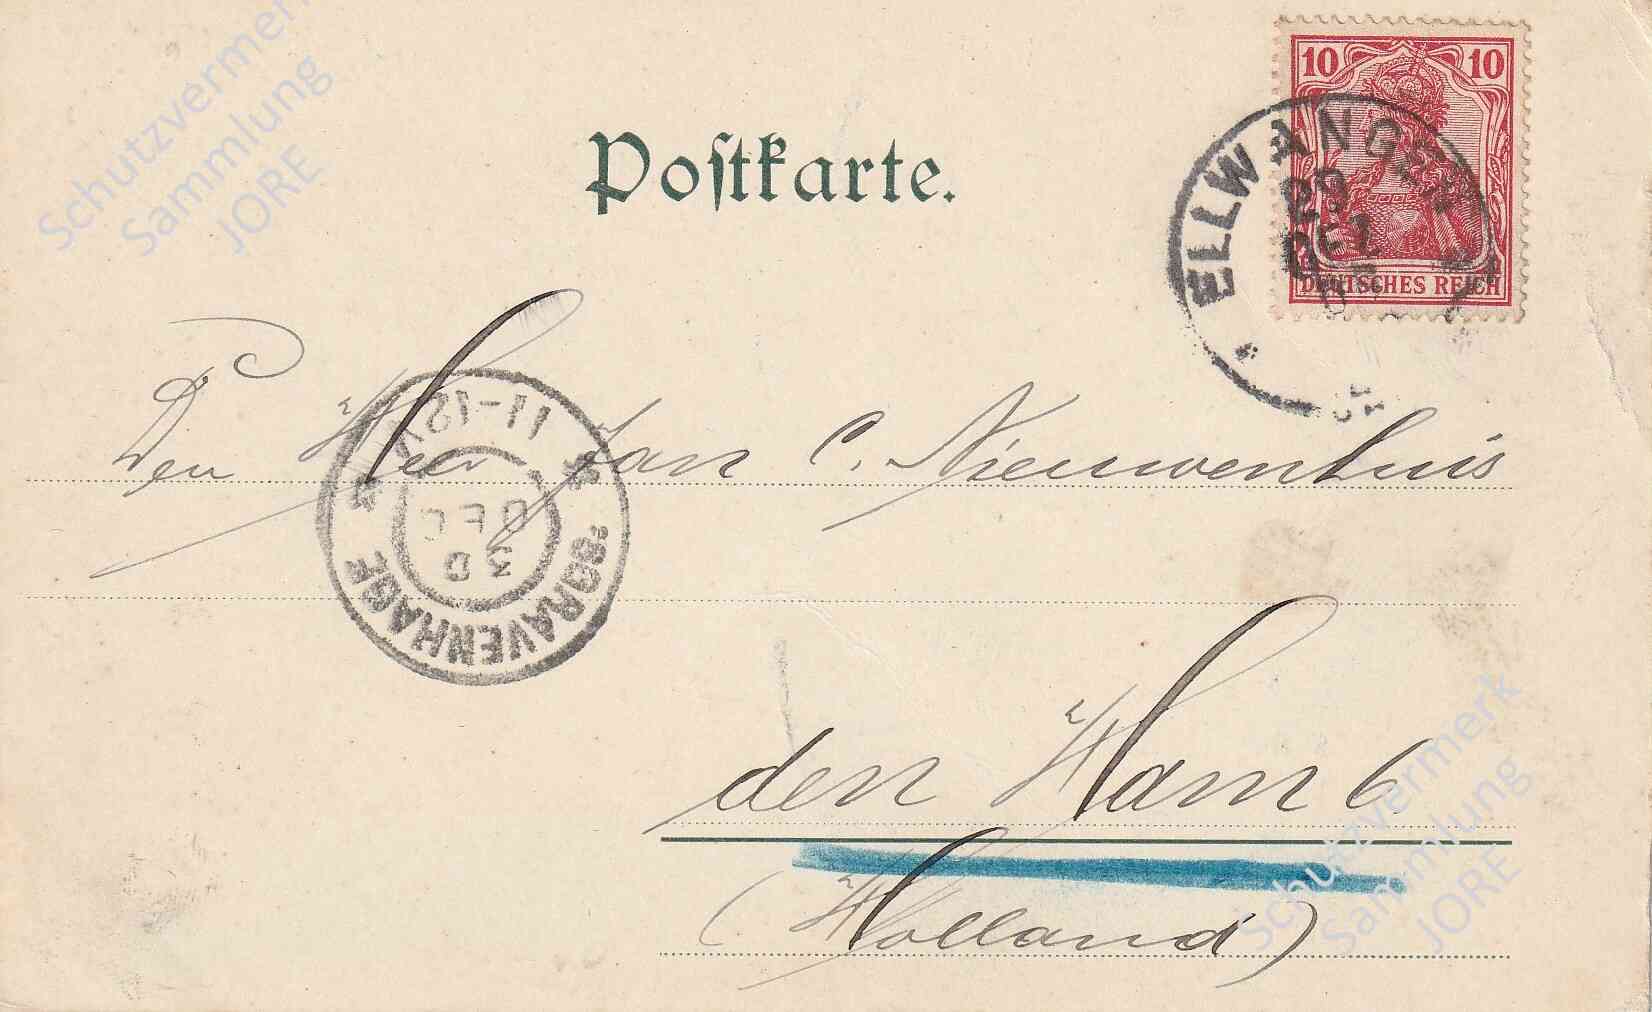 Schutzvermerk
Sammlung
JORE
Postkarte.
10 10
DEUTSCHES REICH
ELLWANGEN
29
DEZ
Den Heer Jan C. Nieuwenhuis
11-12V
30
DEC
'SGRAVENHAGE
den Ham 6
(Holland)
Schutzvermerk
Sammlung
JORE